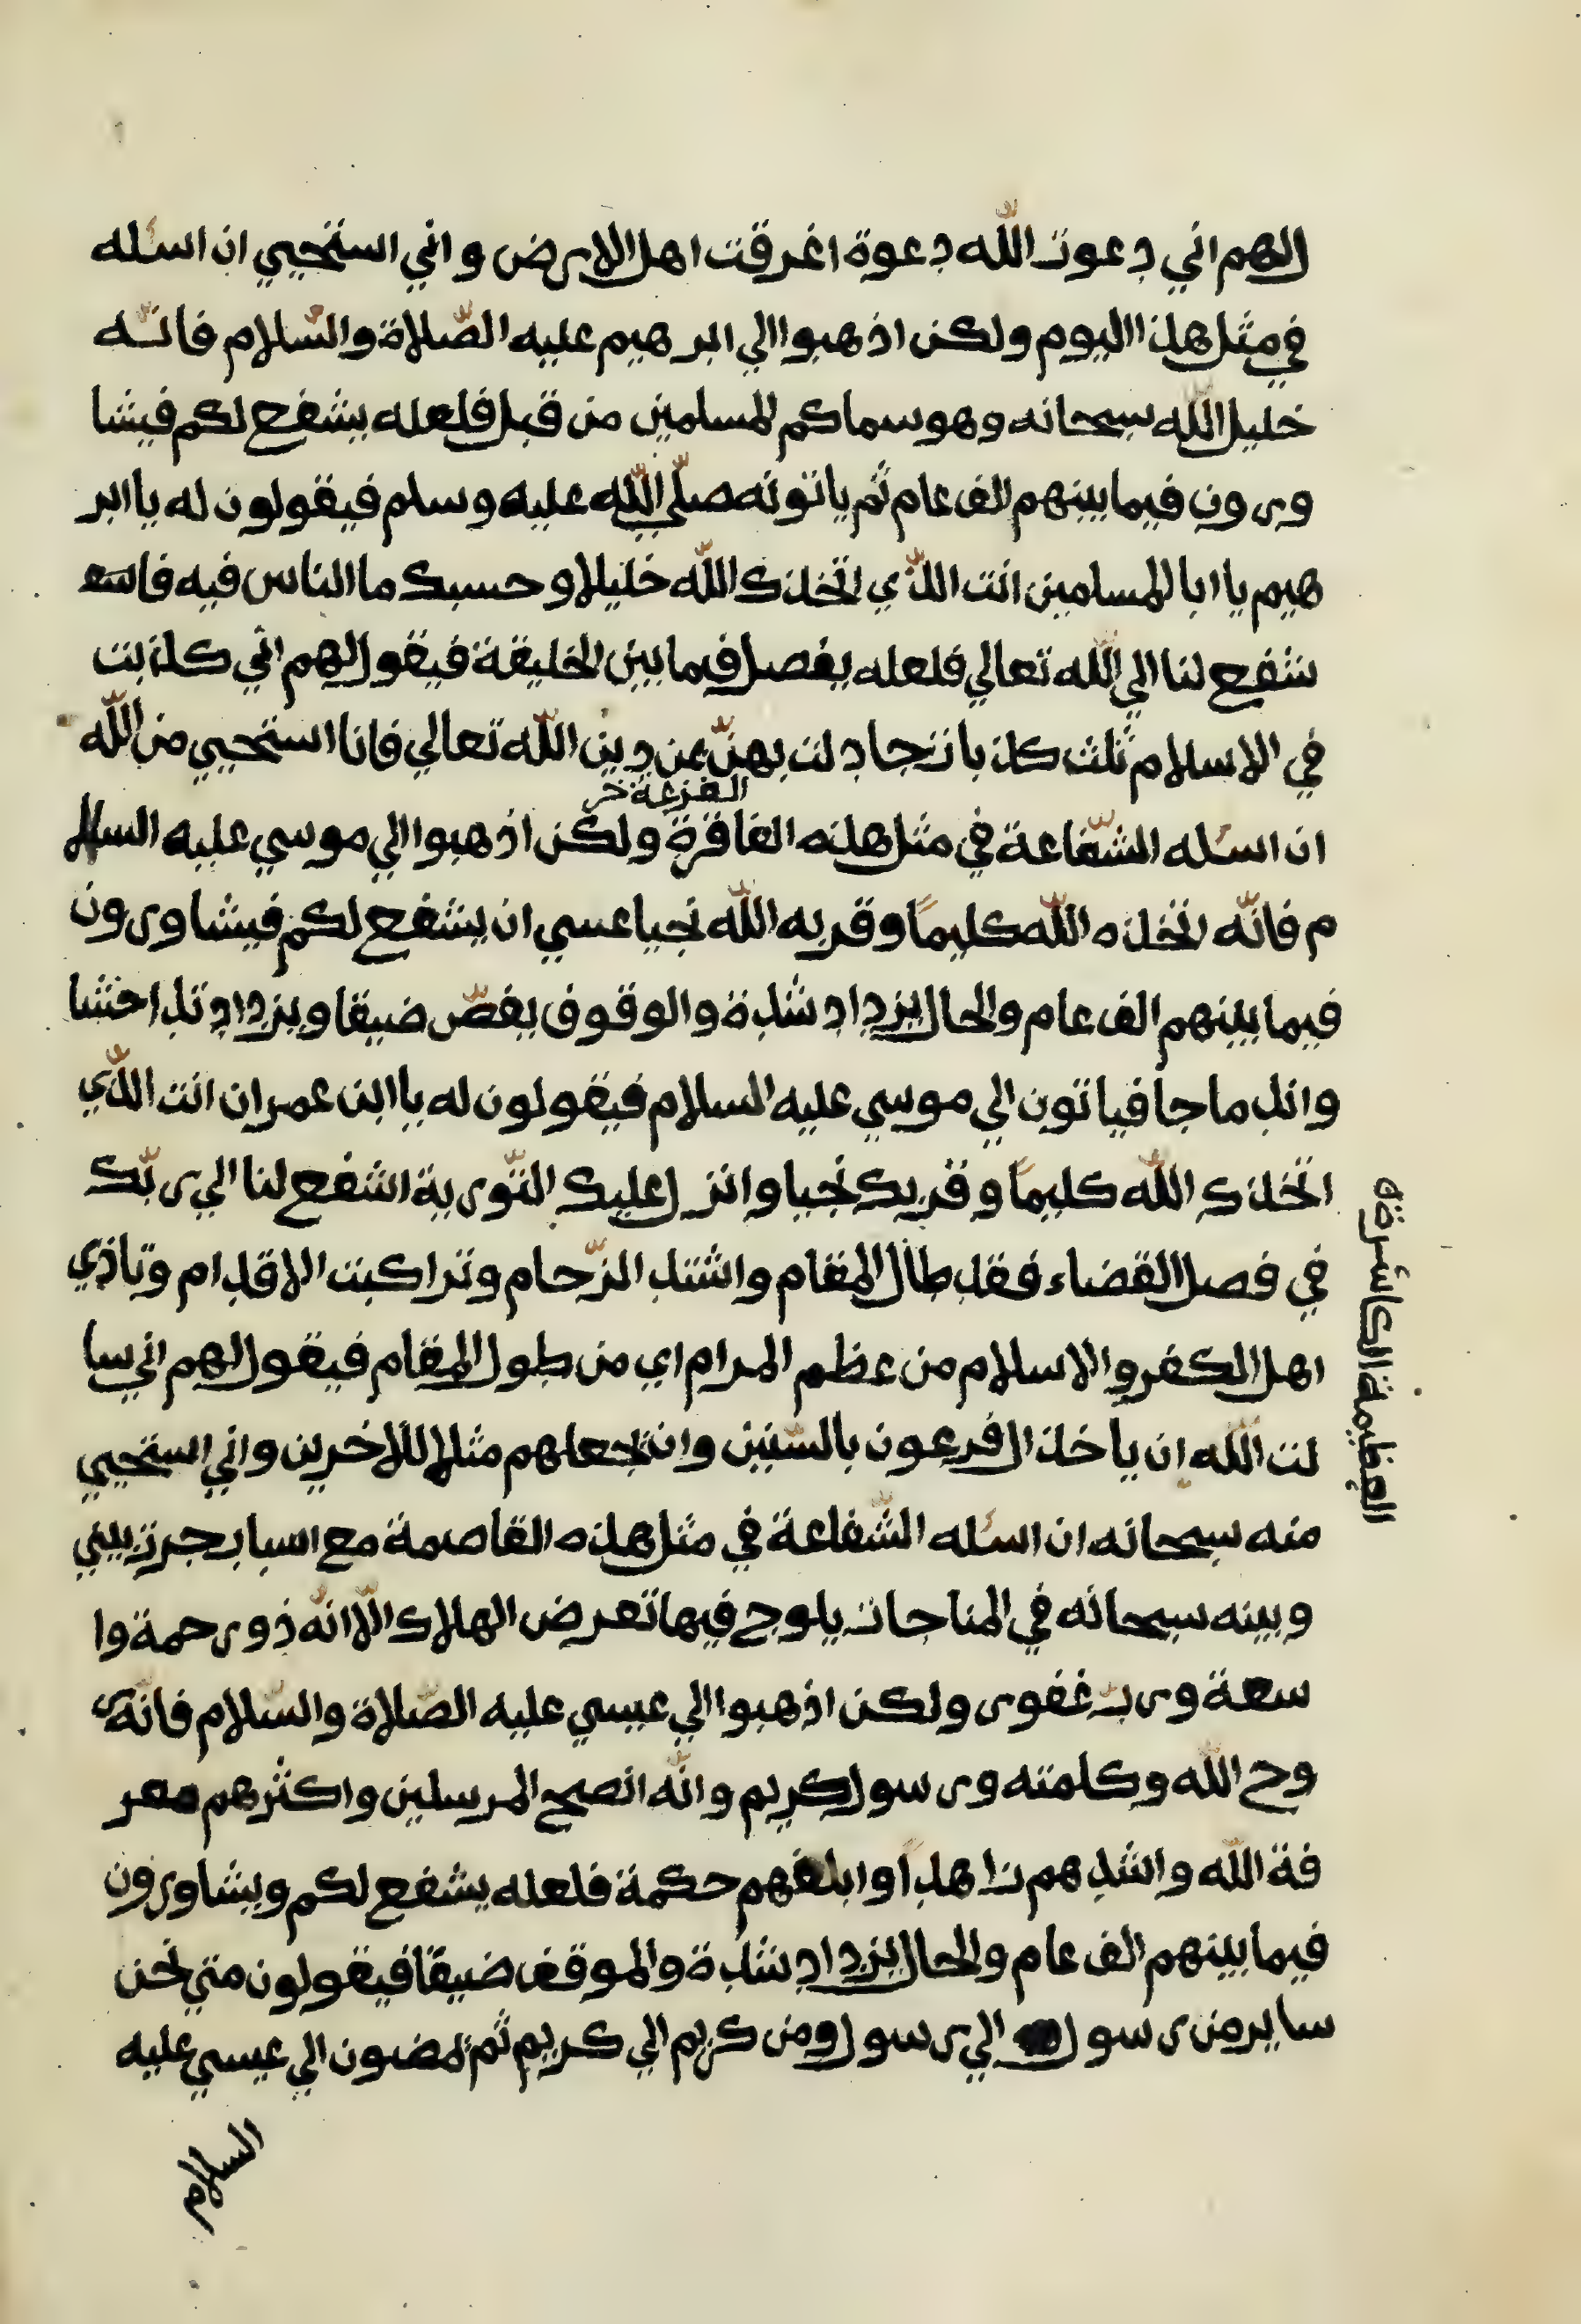 الهم اني دعوت اللّه دعوة اغرقت اهل الارض واني استحيي ان اسٔله
في مثل هذا اليوم ولكن اذهبوا الي ابرهيم عليه الصّلاة والسّلام فانّه
خليل اللّه سبحانه وهو سماكم المسلمين من قبل فلعله يشفع لكم فيشا
ورون فيما بينهم الف عام ثم ياتونه صلّي اللّه عليه وسلم فيقولون له يا ابر
هيم يا ابا المسلمين انت الذّي اتخذك اللّه خليلا وحسبك ما الناس فيه فاست
شفع لنا الي اللّه تعالي فلعله يفصل فيما بين الخليقة فيقول لهم اني كذبت
في الاسلام ثلث كذبات جادلت بهنّ عن دين اللّه تعالي فانا استحيي من اللّه
الفزعة خر
ان اسٔله الشّفاعة في مثل هذه الفاقرة ولكن اذهبوا الي موسي عليه السلا
م فانّه اتخذه اللّه كليمًا وقربه اللّه نجيا عسي ان يشفع لكم فيشاورون
فيما بينهم الف عام والحال يزداد شدة والوقوف يغصّ ضيقا ويزداد
فياتون الي موسي عليه السلام فيقولون له يا ابن عمران انت الذّي
اتخذك اللّه كليمًا وقربك نجيا وانزل عليك التّورية اشفع لنا الي ربّك
في فصل القضاء فقد طال المقام واشتد الزّحام وتراكبت الاقدام وتاذي
اهل الكفر والاسلام من عظم المرام اي من طول المقام فيقول لهم اني سا
لت اللّه ان ياخذ ال فرعون بالسّنين وان نجعلهم مثلا للاخرين واني استحيي
منه سبحانه ان اسٔله الشّفاعة في مثل هذه القاصمة مع اسباب جرت بيني
وبينه سبحانه في المناجات يلوح فيها تعرض الهلاك الّا انّه ذو رحمة وا
سعة وربّ غفور ولكن اذهبوا الي عيسي عليه الصّلاة والسّلام فانّه ر
وح اللّه وكلمته ورسول كريم وانّه انصح المرسلين واكثرهم معر
فة اللّه واشدهم زاهدًا وابلغهم حكمة فلعله يشفع لكم ويشاورون
فيما بينهم الف عام والحال يزداد شدة والموقف ضيقا فيقولون متي نحن
ساير من رسول الي رسول ومن كريم الي كريم ثم يمضون الي عيسي عليه
السلام